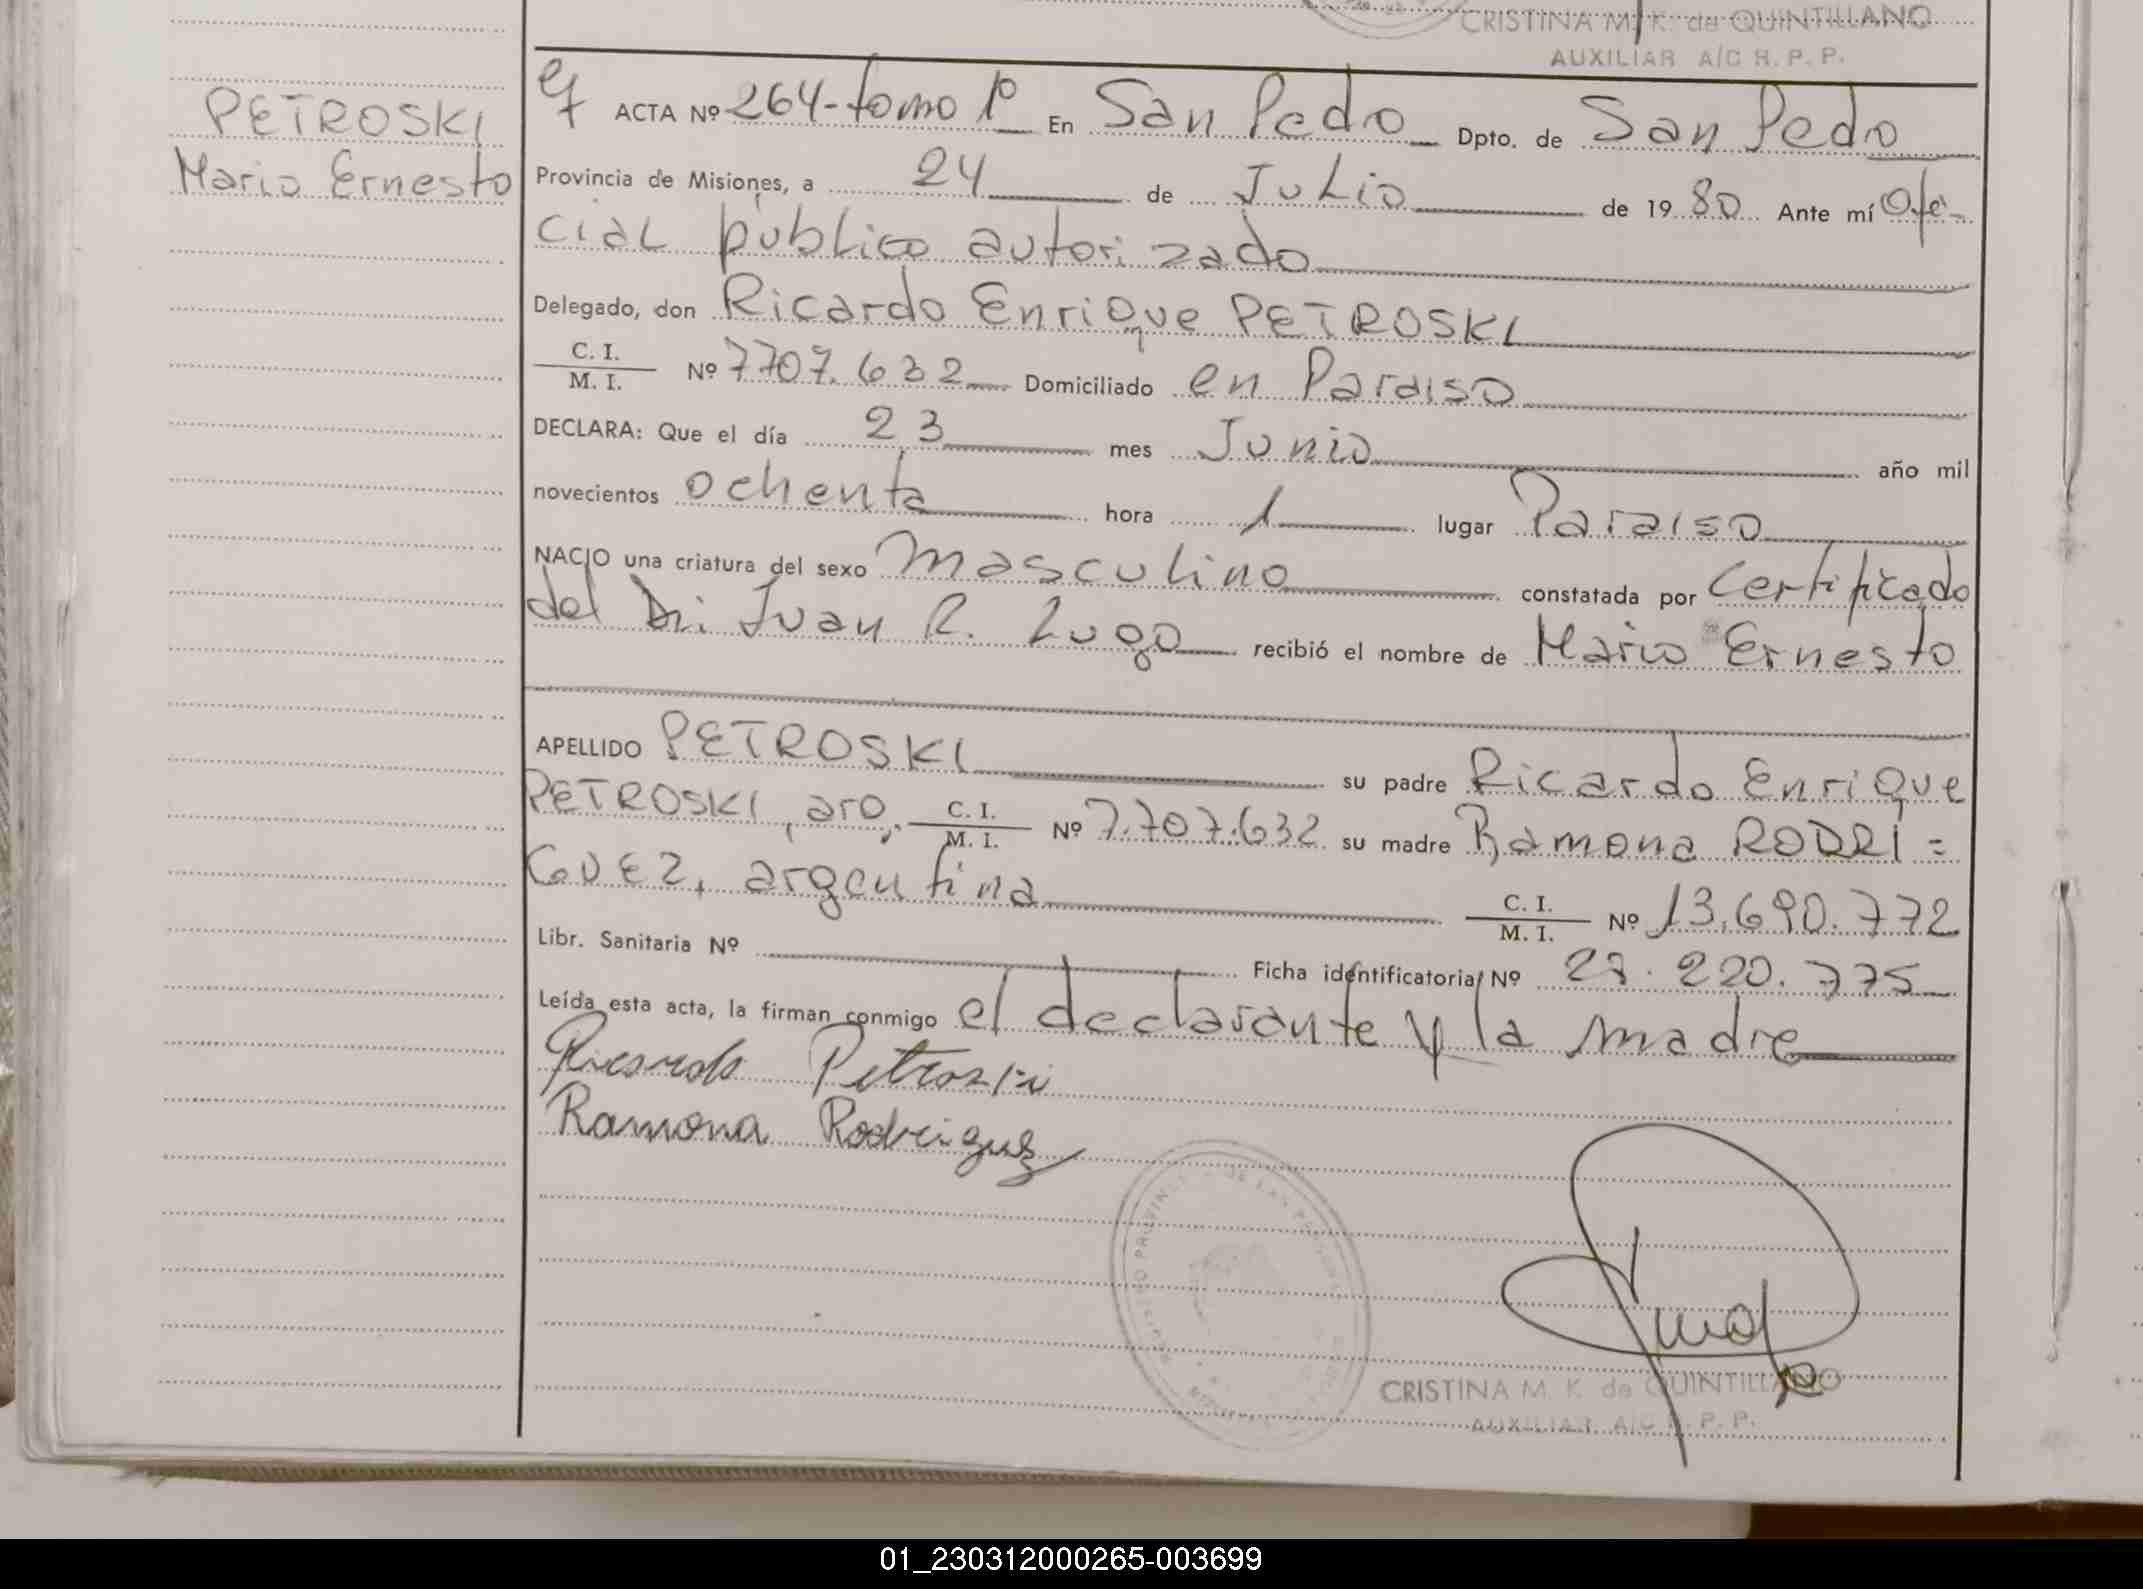 CRISTINA M. K. de QUINTILLANO
AUXILIAR A/C R. P. P.
PETROSKI
Mario Ernesto
ACTA Nº 264-tomo 1º En San Pedro Dpto. de San Pedro
Provincia de Misiones, a 24 de Julio de 19 80 Ante mí Ofi-
cial público autorizado
Delegado, don Ricardo Enrique PETROSKI
C. I.
M. I. Nº 7707.632 Domiciliado en Paraiso
DECLARA: Que el día 23 mes Junio año mil
novecientos ochenta hora 1 lugar Paraiso
NACIO una criatura del sexo masculino constatada por Certificado
del Dr. Juan R. Lugo recibió el nombre de Mario Ernesto
APELLIDO PETROSKI su padre Ricardo Enrique
PETROSKI, aro, C. I. M. I. Nº 7.707.632 su madre Ramona RODRI=
GUEZ, argentina C. I. M. I. Nº 13.690.772
Libr. Sanitaria Nº Ficha identificatoria Nº 27.220.775
Leída esta acta, la firman conmigo el declarante y la madre
Ricardo Petroski
Ramona Rodriguez
CRISTINA M. K. de QUINTILLANO
AUXILIAR A/C R. P. P.
01_230312000265-003699